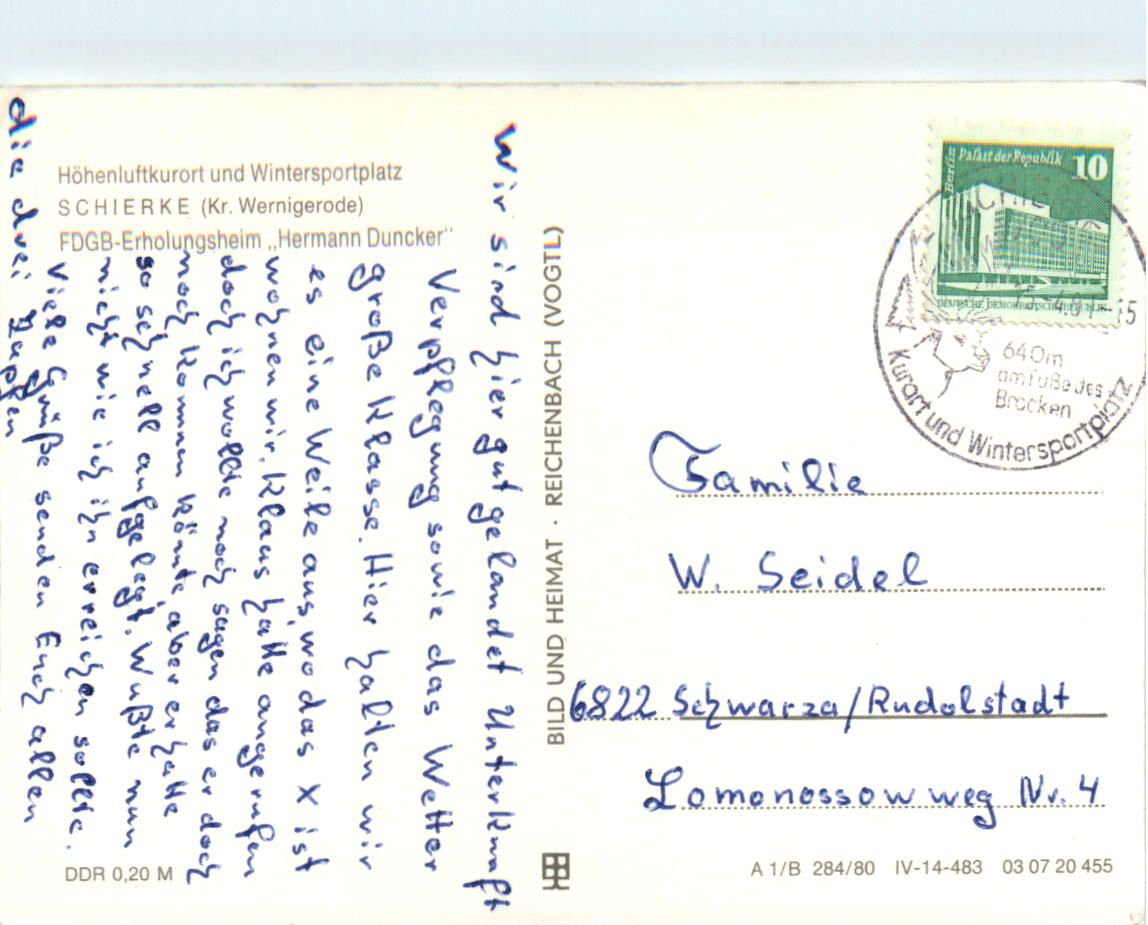 Höhenluftkurort und Wintersportplatz
SCHIERKE (Kr. Wernigerode)
FDGB-Erholungsheim „Hermann Duncker“
Wir sind hier gut gelandet Unterkunft
Verpflegung sowie das Wetter
große Klasse. Hier halten wir
es eine Weile aus, wo das X ist
wohnen wir. Klaus hatte angerufen
doch ich wollte noch sagen das er doch
noch kommen könnte, aber er hatte
so schnell aufgelegt. Wußte nun
nicht wie ich ihn erreichen sollte.
Viele Grüße senden Euch allen
die drei Zapfen
DDR 0,20 M
BILD UND HEIMAT · REICHENBACH (VOGTL)
Berlin
Palast der Republik
10
DEUTSCHE DEMOKRATISCHE REPUBLIK
640m
am Fuße des
Brocken
Kurort und Wintersportplatz
Familie
W. Seidel
6822 Schwarza/Rudolstadt
Lomonossowweg Nr. 4
A 1/B 284/80 IV-14-483 03 07 20 455